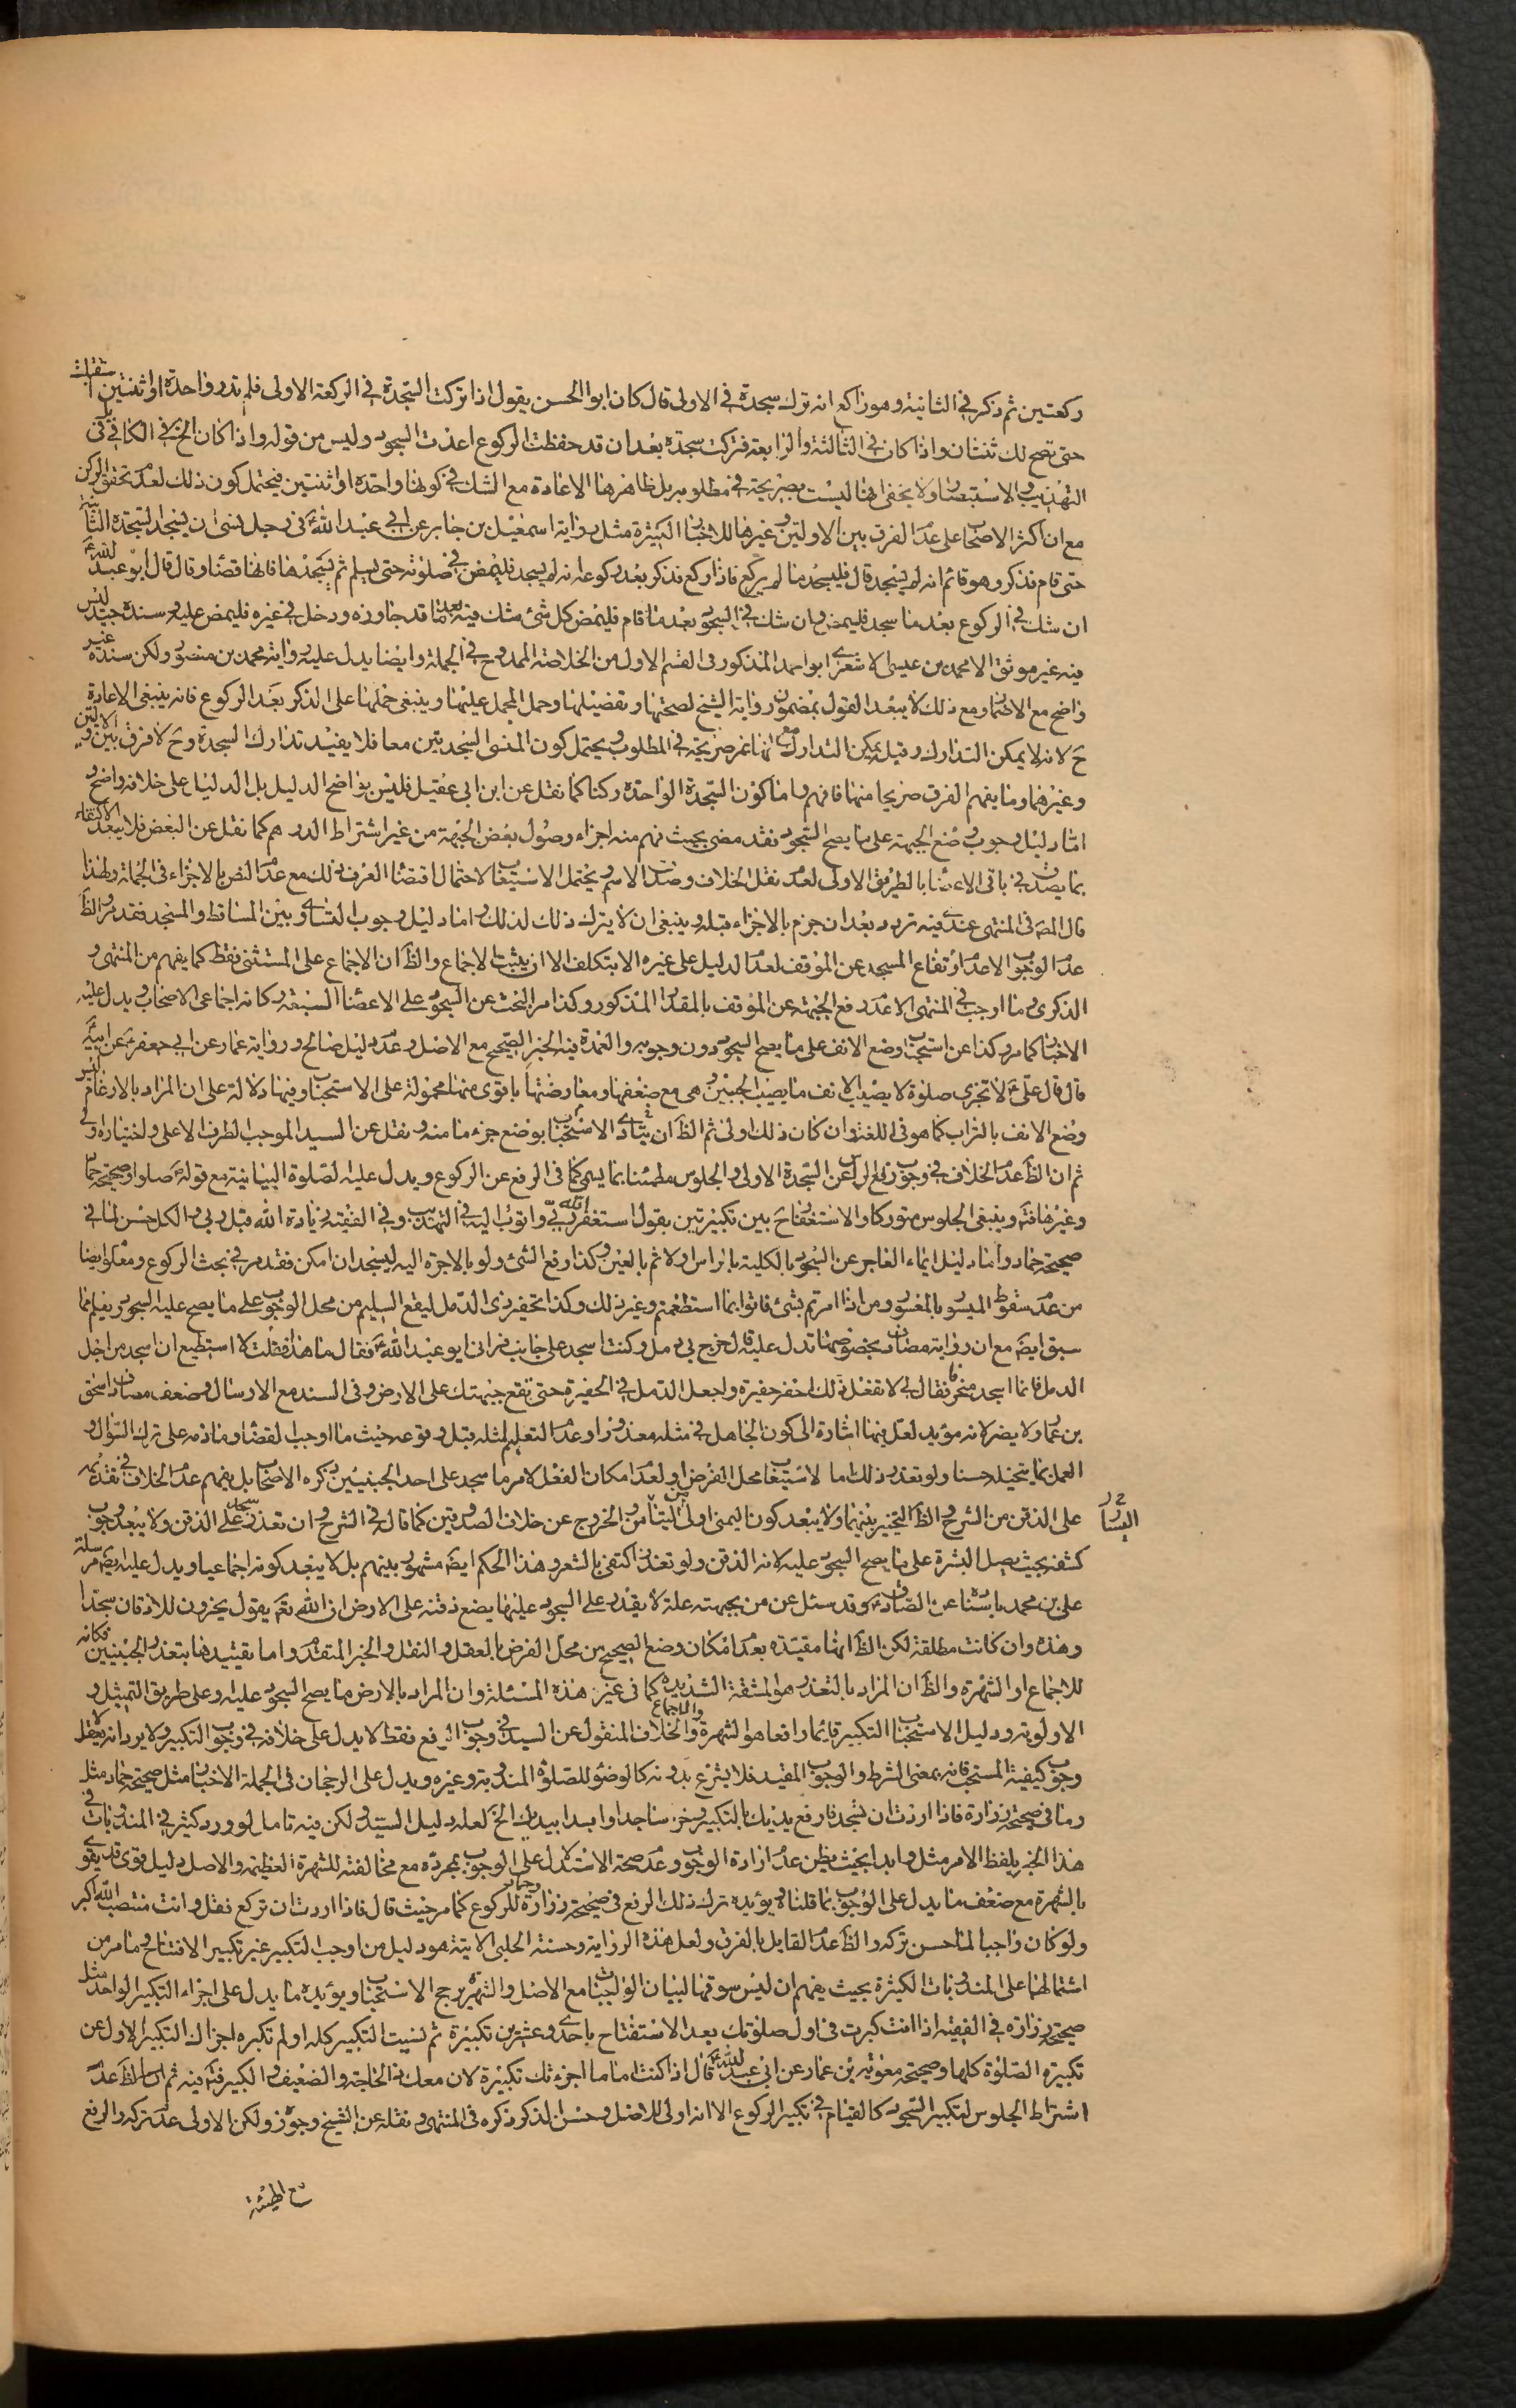 ركعتين ثم ذكر في الثانية وهو راكع انه ترك سجدة في الاولى قال كان ابو الحسن يقول اذا تركت السجدة في الركعة الاولى فلم تدر واحدة او ثنتين استقبلت
حتى تصح لك ثنتان واذا كان في الثالثة والرابعة فتركت سجدة بعد ان قد حفظت الركوع اعدت السجود وليس من قوله واذا كان الخ في الكافي بل في
التهذيب والاستبصار ولا يخفى انها ليست بصريحة في مطلوبه بل ظاهرها الاعادة مع الشك في كونها واحدة او ثنتين فيحتمل كون ذلك لعدم تحقق الركن
مع ان اكثر الاصحاب على عدم الفرق بين الاولتين وغيرها للاخبار الكثيرة مثل رواية اسمعيل بن جابر عن ابي عبد الله ع في رجل نسى ان يسجد السجدة الثانية
حتى قام فذكر وهو قائم انه لم يسجد قال فليسجد ما لم يركع فاذا ركع فذكر بعد ركوعه انه لم يسجد فليمض في صلوته حتى يسلم ثم يسجدها فانها قضاء وقال قال ابو عبد الله ع
ان شك في الركوع بعد ما سجد فليمض وان شك في السجود بعد ما قام فليمض كل شئ شك فيه مما قد جاوزه ودخل في غيره فليمض عليه وسنده جيد ليس
فيه غير موثق الا محمد بن عيسى الاشعري ابو احمد المذكور في القسم الاول من الخلاصة الممدوح في الجملة وايضا يدل عليه رواية محمد بن منصور ولكن سنده غير
واضح مع الاضمار ومع ذلك لا يبعد القول بمضمون رواية الشيخ لصحتها وتفصيلها وحمل المجمل عليها وينبغي حملها على الذكر بعد الركوع فانه ينبغي الاعادة
ح لانه لا يمكن التدارك وقبله يمكن التدارك مع انها غير صريحة في المطلوب ويحتمل كون المنسى السجدتين معا فلا يفيد تدارك السجدة وح لا فرق بين الاولتين
وغيرهما وما يفهم الفرق صريحا منها فافهم واما كون السجدة الواحدة ركنا كما نقل عن ابن ابي عقيل فليس بواضح الدليل بل الدليل على خلافه واضح
اما دليل وجوب وضع الجبهة على ما يصح السجود فقد مضى بحيث فهم منه اجزاء وصول بعض الجبهة من غير اشتراط الدرهم كما نقل عن البعض فلا يبعد الاكتفاء
بما يصدق في باقي الاعضاء بالطريق الاولى لعدم نقل الخلاف وصدق الاسم ويحتمل الاستيعاب لاحتمال اقتضاء العرف ذلك مع عدم النص بالاجزاء في الجملة ولهذا
قال المص في المنتهى عندي فيه تردد بعد ان جزم بالاجزاء قبله وينبغي ان لا يترك ذلك لذلك واما دليل وجوب التساوي وبين المساقط والمسجد فقد مر والظ
عدم الوجوب الا عدم ارتفاع المسجد عن الموقف لعدم الدليل على غيره الا بتكلف الا ان يثبت الاجماع والظ ان الاجماع على المستثنى فقط كما يفهم من المنتهى و
الذكرى وما اوجب في المنتهى الا عدم رفع الجبهة عن الموقف بالمقدار المذكور وكذا مر البحث عن السجود على الاعضاء السبعة وكانه اجماعى الاصحاب ويدل عليه
الاخبار كما مر وكذا عن استحباب وضع الانف على ما يصح السجود دون وجوبه والعمدة فيه الخبر الصحيح مع الاصل وعدم دليل صالح ورواية عمار عن ابي جعفر عن ابيه ع
قال قال علي ع لا تجزى صلوة لا يصيب الانف ما يصيب الجبين وهي مع ضعفها ومعارضتها باقوى منها محمولة على الاستحباب وفيها دلالة على ان المراد بالارغام ليس
وضع الانف بالتراب كما هو في اللغة وان كان ذلك اولى ثم الظ ان يتادى الاستحباب بوضع جزء ما منه ونقل عن السيد الموجب الطرف الاعلى واختياره اولى
ثم ان الظ عدم الخلاف في وجوب رفع الراس عن السجدة الاولى والجلوس مطمئنا بما يسمى كما في الرفع عن الركوع ويدل عليه الصلوة البيانية مع قوله ع صلوا وصحيحة حماد
وغيرها فتم وينبغي الجلوس متوركا والاستغفار ح بين تكبيرتين بقول استغفر الله ربي واتوب اليه في التهذيب وفي الفقيه زيادة الله قبل ربي والكل حسن لما في
صحيحة حماد واما دليل ايماء العاجز عن السجود بالكلية بالراس اولا ثم بالعين وكذا رفع الشئ ولو بالاجرة اليه ليسجد ان امكن فقد مر في بحث الركوع ومعلوم ايضا
من عدم سقوط الميسور بالمعسور ومن اذا امرتم بشئ فاتوا بما استطعتم وغير ذلك وكذا تحفير ذي الدمل ليقع السليم من محل الوجوب على ما يصح عليه السجود ويعلم مما
سبق ايض مع ان رواية مصادف بخصوصها تدل عليه قال خرج بي دمل وكنت اسجد على جانب فراني ابو عبد الله ع فقال ما هذا فقلت لا استطيع ان اسجد من اجل
الدمل فانما اسجد منحرفا فقال لي لا تفعل ذلك احفر حفيرة واجعل الدمل في الحفيرة حتى تقع جبهتك على الارض وفي السند مع الارسال وضعف مصادف اسحق
بن عمار ولا يضر لانه مؤيد لعل فيها اشارة الى كون الجاهل في مثله معذورا وعدم التعليم لمثله قبل وقوعه حيث ما اوجب القضاء وما ذمه على ترك السؤال و
العمل بما يتخيله حسنا ولو تعذر ذلك اما لاستيعاب محل الفرض او لعدم امكان الفعل لامر ما سجد على احد الجبينين ذكره الاصحاب بل يفهم عدم الخلاف في تقديمه
على الذقن من الشرح والظ التخيير بينهما ولا يبعد كون اليمنى اولى للتيامن والخروج عن خلاف الصدوقين كما قال في الشرح وان تعذر سجد على الذقن ولا يبعد وجوب
كشفه بحيث يصل البشرة على ما يصح السجود عليه لانه الذقن ولو تعذر اكتفى بالشعر وهذا الحكم ايض مشهور بينهم بل لا يبعد كونه اجماعيا ويدل عليه ايض مرسلة
علي بن محمد باسناده عن الصادق ع وقد سئل عن من بجبهته علة لا يقدر على السجود عليها يضع ذقنه على الارض ان الله تعم يقول يخرون للاذقان سجدا
وهذه وان كانت مطلقة لكن الظ انها مقيدة بعدم امكان وضع الصحيح من محل الفرض بالعقل والنقل والخبر المتقدم واما تقييدها بتعذر الجبينين فكانه
للاجماع او الشهرة والظ ان المراد بالتعذر هو المشقة الشديدة كما في غير هذه المسئلة وان المراد بالارض ما يصح السجود عليه وعلى طريق التمثيل و
الاولوية ودليل الاستحباب التكبير قائما رافعا هو الشهرة والاجماع والخلاف المنقول عن السيد في وجوب الرفع فقط لا يدل على خلافه في وجوب التكبير ولا يرد انه لا يعقل
وجوب كيفية المستحب فانه بمعنى الشرط والوجوب المقيد فلا يشرع بدونه كالوضوء للصلوة المندوبة وغيره ويدل على الرجحان في الجملة الاخبار مثل صحيحة حماد مثل
وما في صحيحة زرارة فاذا اردت ان تسجد فارفع يديك بالتكبير وخر ساجدا وابدا بيديك الخ لعله دليل السيد ولكن فيه تامل لورود كثير في المندوبات في
هذا الخبر بلفظ الامر مثل وابدا بحيث يظن عدم ارادة الوجوب وعدم صحة الاستدلال على الوجوب بمجرده مع مخالفته للشهرة العظيمة والاصل دليل قوى قد يقوى
بالشهرة مع ضعف ما يدل على الوجوب بما قلناه ويؤيده ترك ذلك الرفع في صحيحة زرارة وحماد للركوع كما مر حيث قال فاذا اردت ان تركع فقل وانت منتصب الله اكبر
ولو كان واجبا لما حسن تركه والظ عدم القابل بالفرق ولعل هذه الرواية وحسنة الحلبي الاتية هو دليل من اوجب التكبير غير تكبير الافتتاح وما مر من
اشتمالها على المندوبات الكثيرة بحيث يفهم ان ليس سوقها لبيان الواجبات مع الاصل والشهرة يرجح الاستحباب ويؤيده ما يدل على اجزاء التكبير الواحد مثل
صحيحة زرارة في الفقيه اذا انت كبرت في اول صلوتك بعد الاستفتاح باحدى وعشرين تكبيرة ثم نسيت التكبير كله او لم تكبره اجزاك التكبير الاول عن
تكبيرة الصلوة كلها وصحيحة معوية بن عمار عن ابي عبد الله ع قال اذا كنت اماما اجزءتك تكبيرة لان معك ذا الحاجة والضعيف والكبير فتم فيه ثم ان الظ عدم
اشتراط الجلوس لتكبير السجود كالقيام في تكبير الركوع الا انه اولى للاصل وحسن الذكر ذكره في المنتهى ونقله عن الشيخ وجوز ولكن الاولى عدم تركه والرفع
اليسار